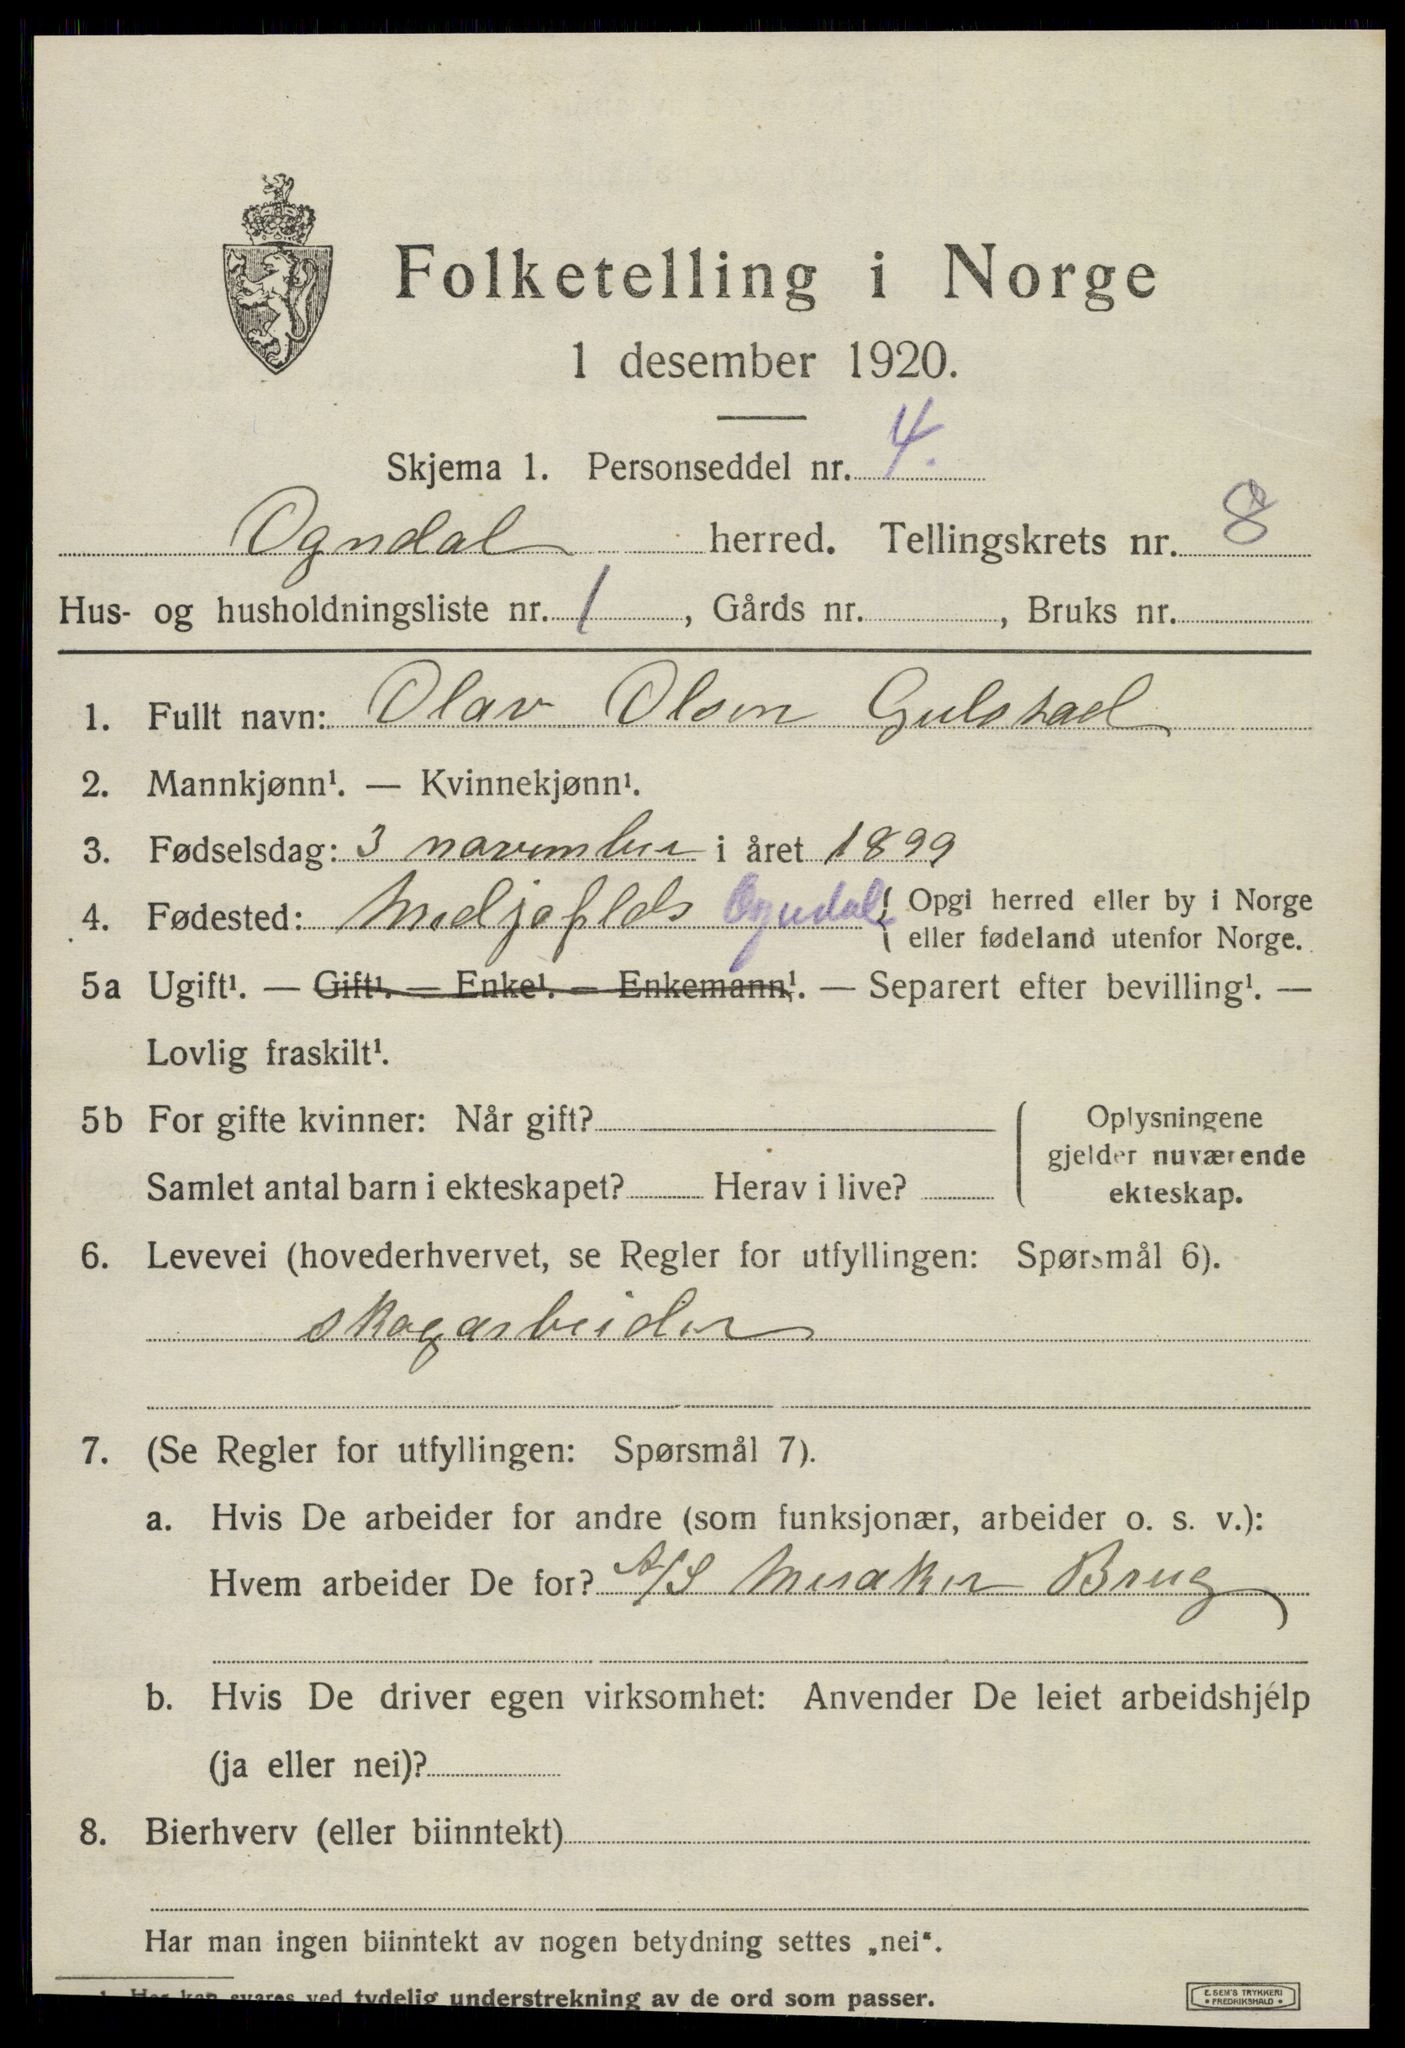 Folketelling i Norge
1 desember 1920.
Skjema 1. Personseddel nr. 4.
Ogndal herred. Tellingskrets nr. 8
Hus- og husholdningsliste nr. 1, Gårds nr. , Bruks nr.
1. Fullt navn: Olav Olsen Gulstad
2. Mannkjønn¹. — Kvinnekjønn¹.
3. Fødselsdag: 3 november i året 1899
4. Fødested: Ogndal { Opgi herred eller by i Norge
eller fødeland utenfor Norge.
5a Ugift¹. — Gift¹. — Enke¹. — Enkemann¹. — Separert efter bevilling¹. —
Lovlig fraskilt¹.
5b For gifte kvinner: Når gift?
Samlet antal barn i ekteskapet? Herav i live?
Oplysningene
gjelder nuværende
ekteskap.
6. Levevei (hovederhvervet, se Regler for utfyllingen: Spørsmål 6).
skogarbeider
7. (Se Regler for utfyllingen: Spørsmål 7).
a. Hvis De arbeider for andre (som funksjonær, arbeider o. s. v.):
Hvem arbeider De for? A/S Meraker Brug
b. Hvis De driver egen virksomhet: Anvender De leiet arbeidshjelp
(ja eller nei)?
8. Bierhverv (eller biinntekt)
Har man ingen biinntekt av nogen betydning settes „nei“.
¹ Her kan svares ved tydelig understrekning av de ord som passer.
E. SEM'S TRYKKERI
• FREDRIKSHALD •